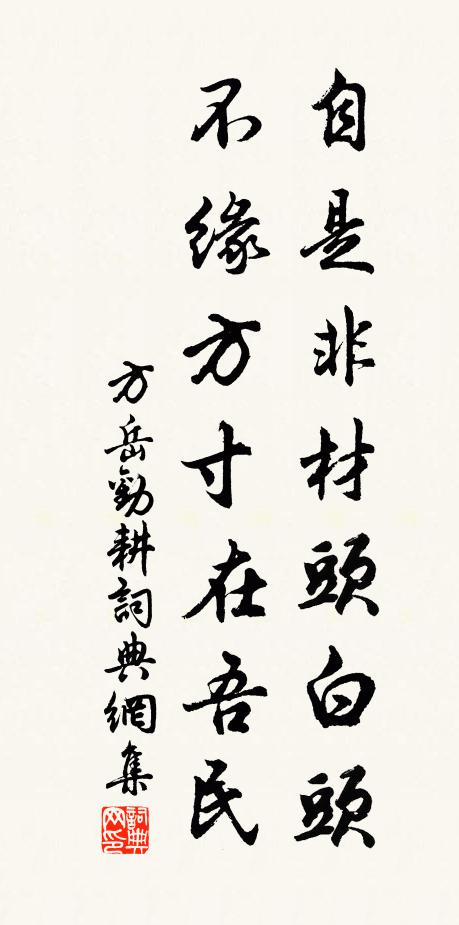 自是非材頭白頭
不緣方寸在吾民
方岳勸耕詞典網集
詞典网印